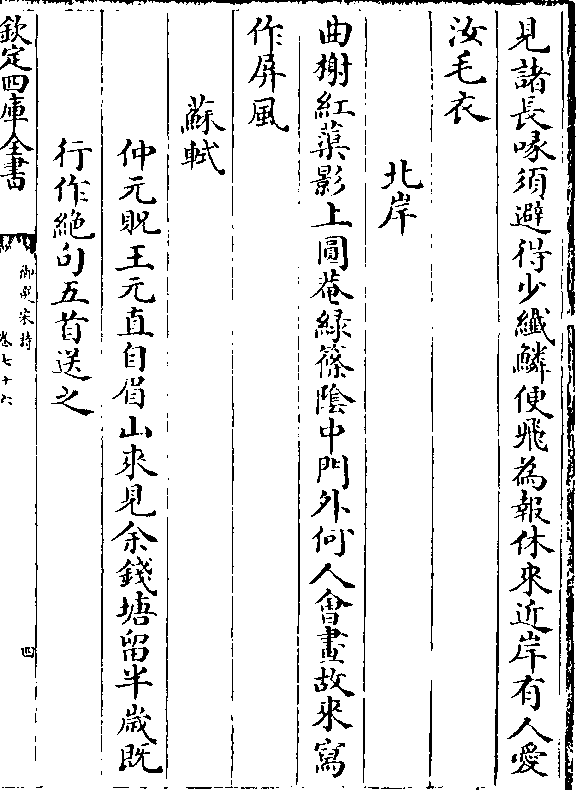 見諸長喙須避得少纖鱗便飛為報休來近岸有人愛
汝毛衣
北岸
曲榭紅蕖影上圓菴緑篠隂中門外何人㑹畫故來寫
作屏風
蘇軾
仲元貺王元直自眉山來見余錢塘留半嵗既
行作絶句五首送之
欽定四庫全書
御選宋詩
卷七十六
四